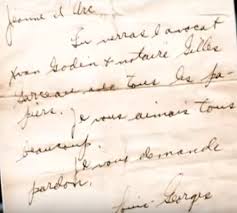 Jeanne d'Arc.
Tu verras l'avocat
Yvan Godin & notaire Gilles
a de tous les pa-
piers. Je vous aimais tous
beaucoup.
Je vous demande
pardon.
Georges